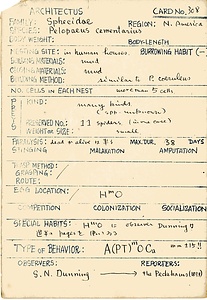 ARCHITECTUS CARD NO. 308
FAMILY: Sphecidae REGION: N. America
SPECIES: Pelopaeus cementarius
BODY WEIGHT: BODY-LENGTH
NESTING SITE: in human houses. BURROWING HABIT (—)
BUILDING MATERIALS: mud
CLOSING MATERIALS: mud
BUILDING METHOD: similar to P. coeruleus
NO. CELLS IN EACH NEST more than 5 cells
PREY
KIND: many kinds
PRESERVED NO.: spiders (in one case)
WEIGHT OR SIZE: small
PARALYSIS: dead or alive MAX. DUR. 38 DAYS
STINGING MALAXATION AMPUTATION
TRSP. METHOD:
GRASPING:
ROUTE:
EGG LOCATION: HmO
COMPETITION COLONIZATION SOCIALIZATION
SPECIAL HABITS: HmO is observer Dunning's
TYPE OF BEHAVIOR: A(PT)mOCa m=±15!!
OBSERVERS: REPORTERS:
S. N. Dunning → the Peckhams